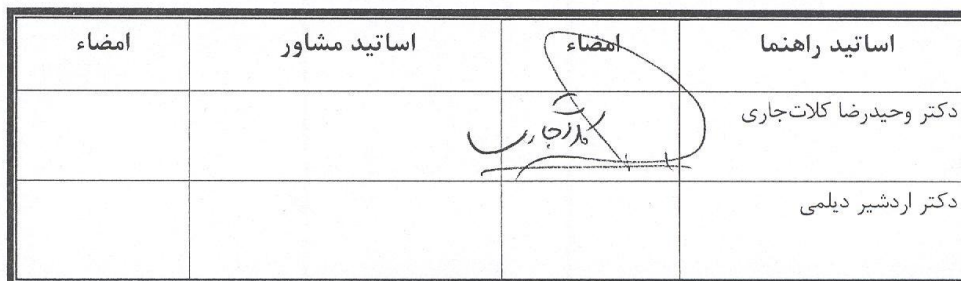 اساتید راهنما امضاء اساتید مشاور امضاء
دکتر وحیدرضا کلات‌جاری
کلاتجاری
دکتر اردشیر دیلمی